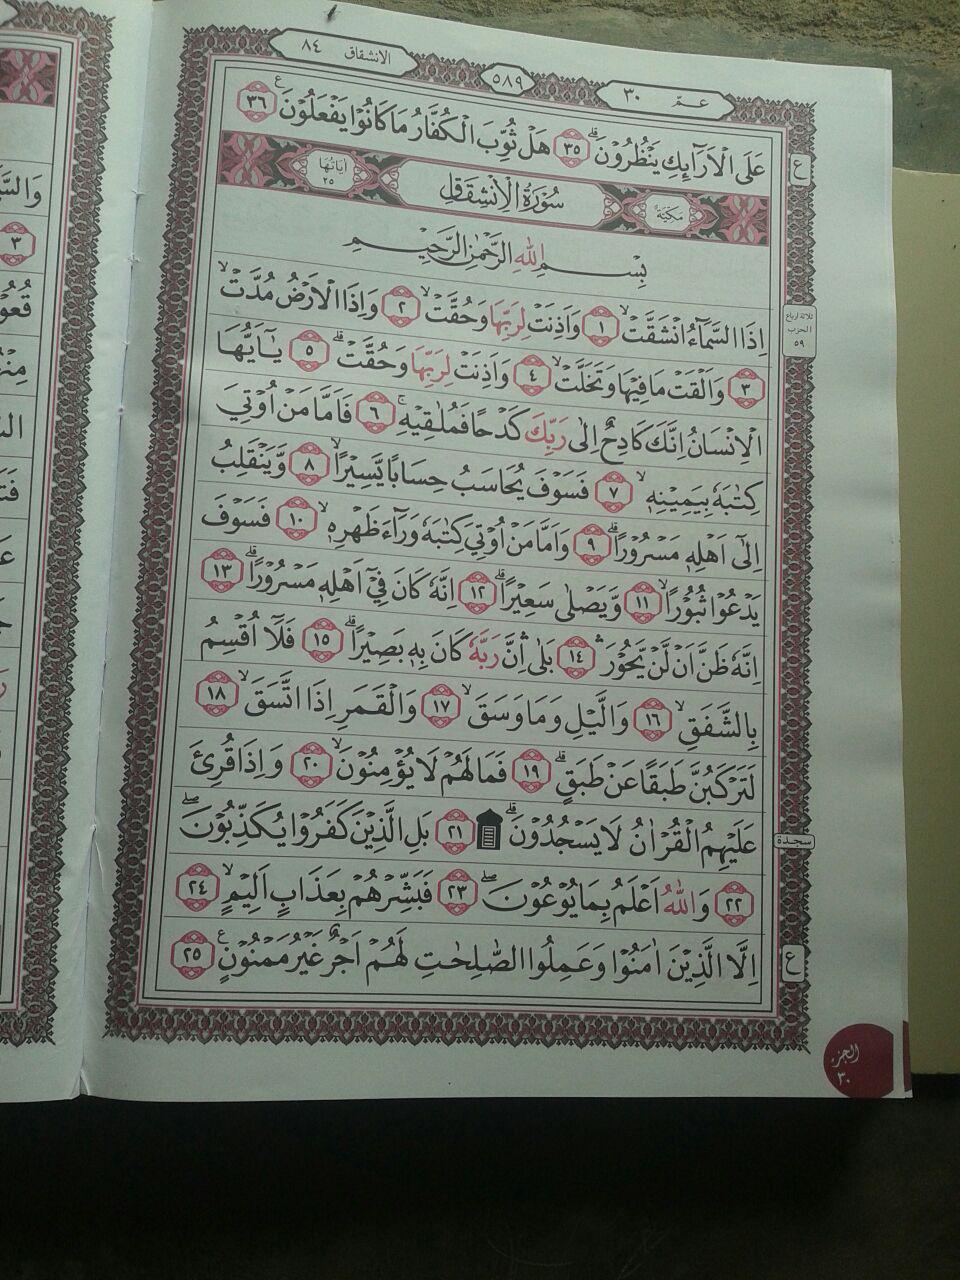 الانشقاق ٨٤
٥٨٩
عـمّ ٣٠
عَلَى الْاَرَاۤىِٕكِ يَنْظُرُوْنَۗ ٣٥ هَلْ ثُوِّبَ الْكُفَّارُ مَا كَانُوْا يَفْعَلُوْنَ ࣖ ٣٦
ع
مَكِّيَّة
سُوْرَةُ الْاِنْشِقَاقِ
اٰيَاتُهَا ٢٥
بِسْمِ اللّٰهِ الرَّحْمٰنِ الرَّحِيْمِ
اِذَا السَّمَاۤءُ انْشَقَّتْۙ ١ وَاَذِنَتْ لِرَبِّهَا وَحُقَّتْۙ ٢ وَاِذَا الْاَرْضُ مُدَّتْۙ
ثلاثة ارباع
الحزب
٥٩
٣ وَاَلْقَتْ مَا فِيْهَا وَتَخَلَّتْۙ ٤ وَاَذِنَتْ لِرَبِّهَا وَحُقَّتْۗ ٥ يٰٓاَيُّهَا
الْاِنْسَانُ اِنَّكَ كَادِحٌ اِلٰى رَبِّكَ كَدْحًا فَمُلٰقِيْهِۚ ٦ فَاَمَّا مَنْ اُوْتِيَ
كِتٰبَهٗ بِيَمِيْنِهٖۙ ٧ فَسَوْفَ يُحَاسَبُ حِسَابًا يَّسِيْرًاۙ ٨ وَّيَنْقَلِبُ
اِلٰٓى اَهْلِهٖ مَسْرُوْرًاۗ ٩ وَاَمَّا مَنْ اُوْتِيَ كِتٰبَهٗ وَرَاۤءَ ظَهْرِهٖۙ ١٠ فَسَوْفَ
يَدْعُوْا ثُبُوْرًاۙ ١١ وَّيَصْلٰى سَعِيْرًاۗ ١٢ اِنَّهٗ كَانَ فِيْٓ اَهْلِهٖ مَسْرُوْرًاۗ ١٣
اِنَّهٗ ظَنَّ اَنْ لَّنْ يَّحُوْرَۛ ١٤ بَلٰىۛ اِنَّ رَبَّهٗ كَانَ بِهٖ بَصِيْرًاۗ ١٥ فَلَآ اُقْسِمُ
بِالشَّفَقِۙ ١٦ وَالَّيْلِ وَمَا وَسَقَۙ ١٧ وَالْقَمَرِ اِذَا اتَّسَقَۙ ١٨
لَتَرْكَبُنَّ طَبَقًا عَنْ طَبَقٍۗ ١٩ فَمَا لَهُمْ لَا يُؤْمِنُوْنَۙ ٢٠ وَاِذَا قُرِئَ
عَلَيْهِمُ الْقُرْاٰنُ لَا يَسْجُدُوْنَۗ ۩ ٢١ بَلِ الَّذِيْنَ كَفَرُوْا يُكَذِّبُوْنَۖ
سجدة
٢٢ وَاللّٰهُ اَعْلَمُ بِمَا يُوْعُوْنَۖ ٢٣ فَبَشِّرْهُمْ بِعَذَابٍ اَلِيْمٍۙ ٢٤
اِلَّا الَّذِيْنَ اٰمَنُوْا وَعَمِلُوا الصّٰلِحٰتِ لَهُمْ اَجْرٌ غَيْرُ مَمْنُوْنٍ ࣖ ٢٥
ع
الجزء
٣٠